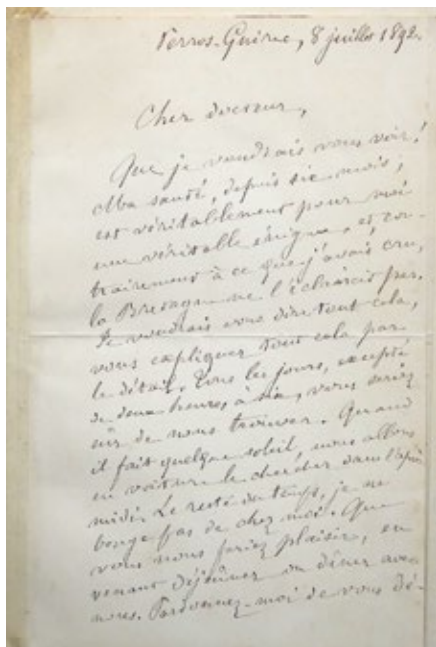 Perros-Guirec, 8 juillet 1892.
Cher docteur,
Que je voudrais vous voir!
Ma santé, depuis six mois,
est véritablement pour moi
une véritable énigme, et, con-
trairement à ce que j'avais cru,
la Bretagne ne l'éclaircit pas.
Je voudrais vous dire tout cela,
vous expliquer tout cela par
le détail. Tous les jours, excepté
de deux heures à six, vous seriez
sûr de nous trouver. Quand
il fait quelque soleil, nous allons
en voiture le chercher dans l'après
midi. Le reste du temps, je ne
bouge pas de chez moi. Que
vous nous feriez plaisir, en
venant déjeûner ou dîner avec
nous. Pardonnez-moi de vous dé-